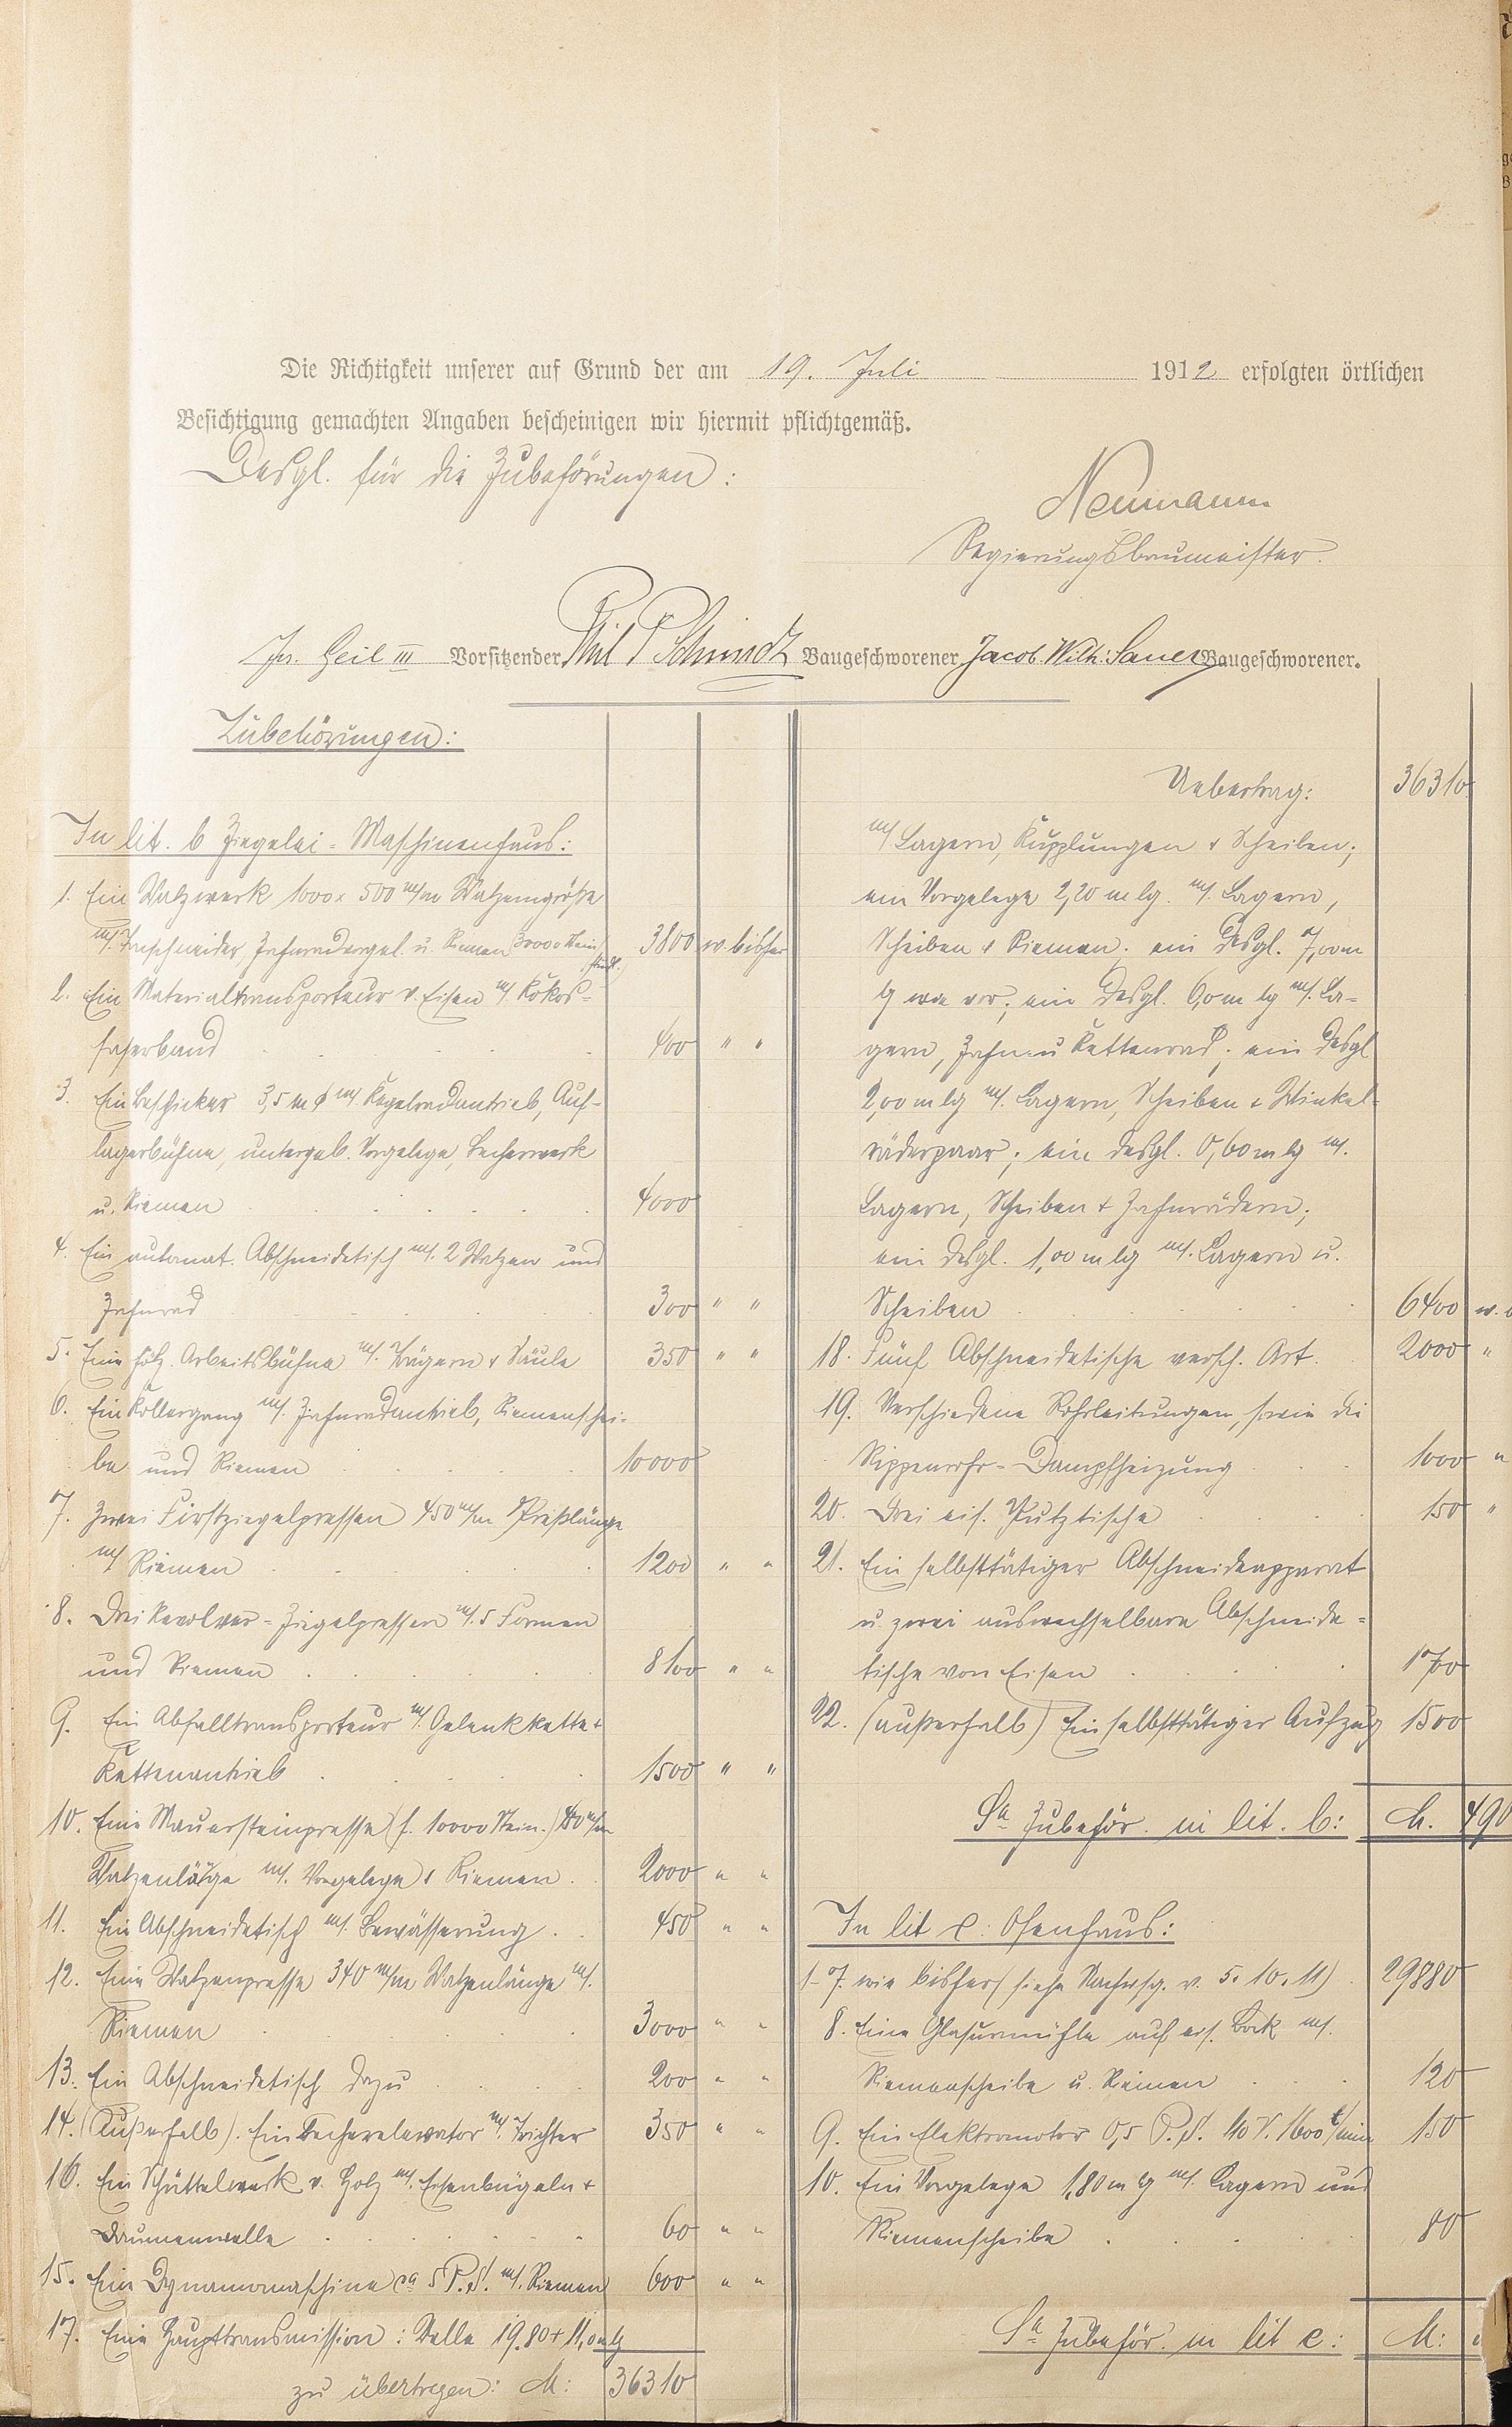 Die Richtigkeit unserer auf Grund der am 19. Juli 1912 erfolgten örtlichen
Besichtigung gemachten Angaben bescheinigen wir hiermit pflichtgemäß.
Desgl. für die Zubehörungen:
Neumann
Regierungsbaumeister.
Jh. Geil III Vorsitzender Phil P Schmidt Baugeschworener Jacob Wilh: Sauer Baugeschworener.
Zubehörungen:
In lit. b Ziegelei-Maschinenhaus:
1. Ein Walzwerk 1000 x 500 m/m Walzengröße
m/. Tonschneider, Zahnradvorgel. u. Riemen 30000 Stein 3800 w. bisher
2. Ein Materialtransporteur v. Eisen m/ Kokos-
faserband 400 " "
3. Ein Beschicker 3,5 m ϕ m/. Kegelradantrieb, Auf-
lagerbühne, untergeb. Vorgelege, Becherwerk
u. Riemen 4000
4. Ein automat. Abschneidetisch m/. 2 Walzen und
Zahnrad 300 " "
5. Eine hölz. Arbeitsbühne m/. Trägern & Säule 350 " "
6. Ein Kollergang m/. Zahnradantrieb, Riemenschei-
be und Riemen 10000
7. Zwei Firstziegelpressen 450 m/m Preßlänge
m/ Riemen 1200 " "
8. Drei Revolver-Ziegelpressen m/. 5 Formen
und Riemen 8100 " "
9. Ein Abfalltransporteur m/. Gelenkkette &
Kettenantrieb 1500 " "
10. Eine Mauersteinpresse (f. 10000 Stein.) 480 m/m
Walzenlänge m/. Vorgelege & Riemen. 2000 " "
11. Ein Abschneidetisch m/. Bewässerung 450 " "
12. Eine Walzenpresse 340 m/m Walzenlänge m/.
Riemen 3000 " "
13. Ein Abschneidetisch dazu 200 " "
14. (Außerhalb). Ein Becherelevator m/. Trichter 350 " "
16. Ein Schüttelwerk v. Holz m/. Eisenbügeln &
Daumenwelle 60 " "
15. Eine Dynamomaschine ca 5 P.S. m/. Riemen 600 " "
17. Eine Haupttransmission: Welle 19.80 + 11,0 m lg
zu übertragen: M: 36310
Uebertrag: 36310
m/ Lagern, Kupplungen & Scheiben;
ein Vorgelege 2,20 m lg. m/. Lagern,
Scheiben & Riemen; ein desgl. 7,00 m
lg wie vor; ein desgl. 6,0 m lg m/. La-
gern, Zahn- u Kettenrad; ein desgl
2,00 m lg m/. Lagern, Scheiben & Winkel-
räderpaar; ein desgl. 0,60 m lg m/.
Lagern, Scheiben & Zahnrädern;
ein desgl. 1,00 m lg m/. Lagern u.
Scheiben 6400 w. b
18. Fünf Abschneidetische versch. Art. 2000 "
19. Verschiedene Rohrleitungen, sowie die
Rippenrohr-Dampfheizung 1000 "
20. Drei eis. Putztische 150 "
21. Ein selbsttätiger Abschneideapparat
u. zwei auswechselbare Abschneide-
tische von Eisen 1700
22. (außerhalb) Ein selbsttätiger Aufzug 1500
Sa Zubehör. in lit. b: M. 490
In lit c: Ofenhaus:
1-7. wie bisher (siehe Nachtrg. v. 5. 10. 11) 29880
8. Eine Glasurmühle auf eis. Bock m/.
Riemenscheibe u. Riemen 120
9. Ein Elektromotor 0,5 P.S. 110 V. 1600 t/min 150
10. Ein Vorgelege 1,80 m lg m/. Lagern und
Riemenscheibe 80
Sa Zubehör. in lit c: M: